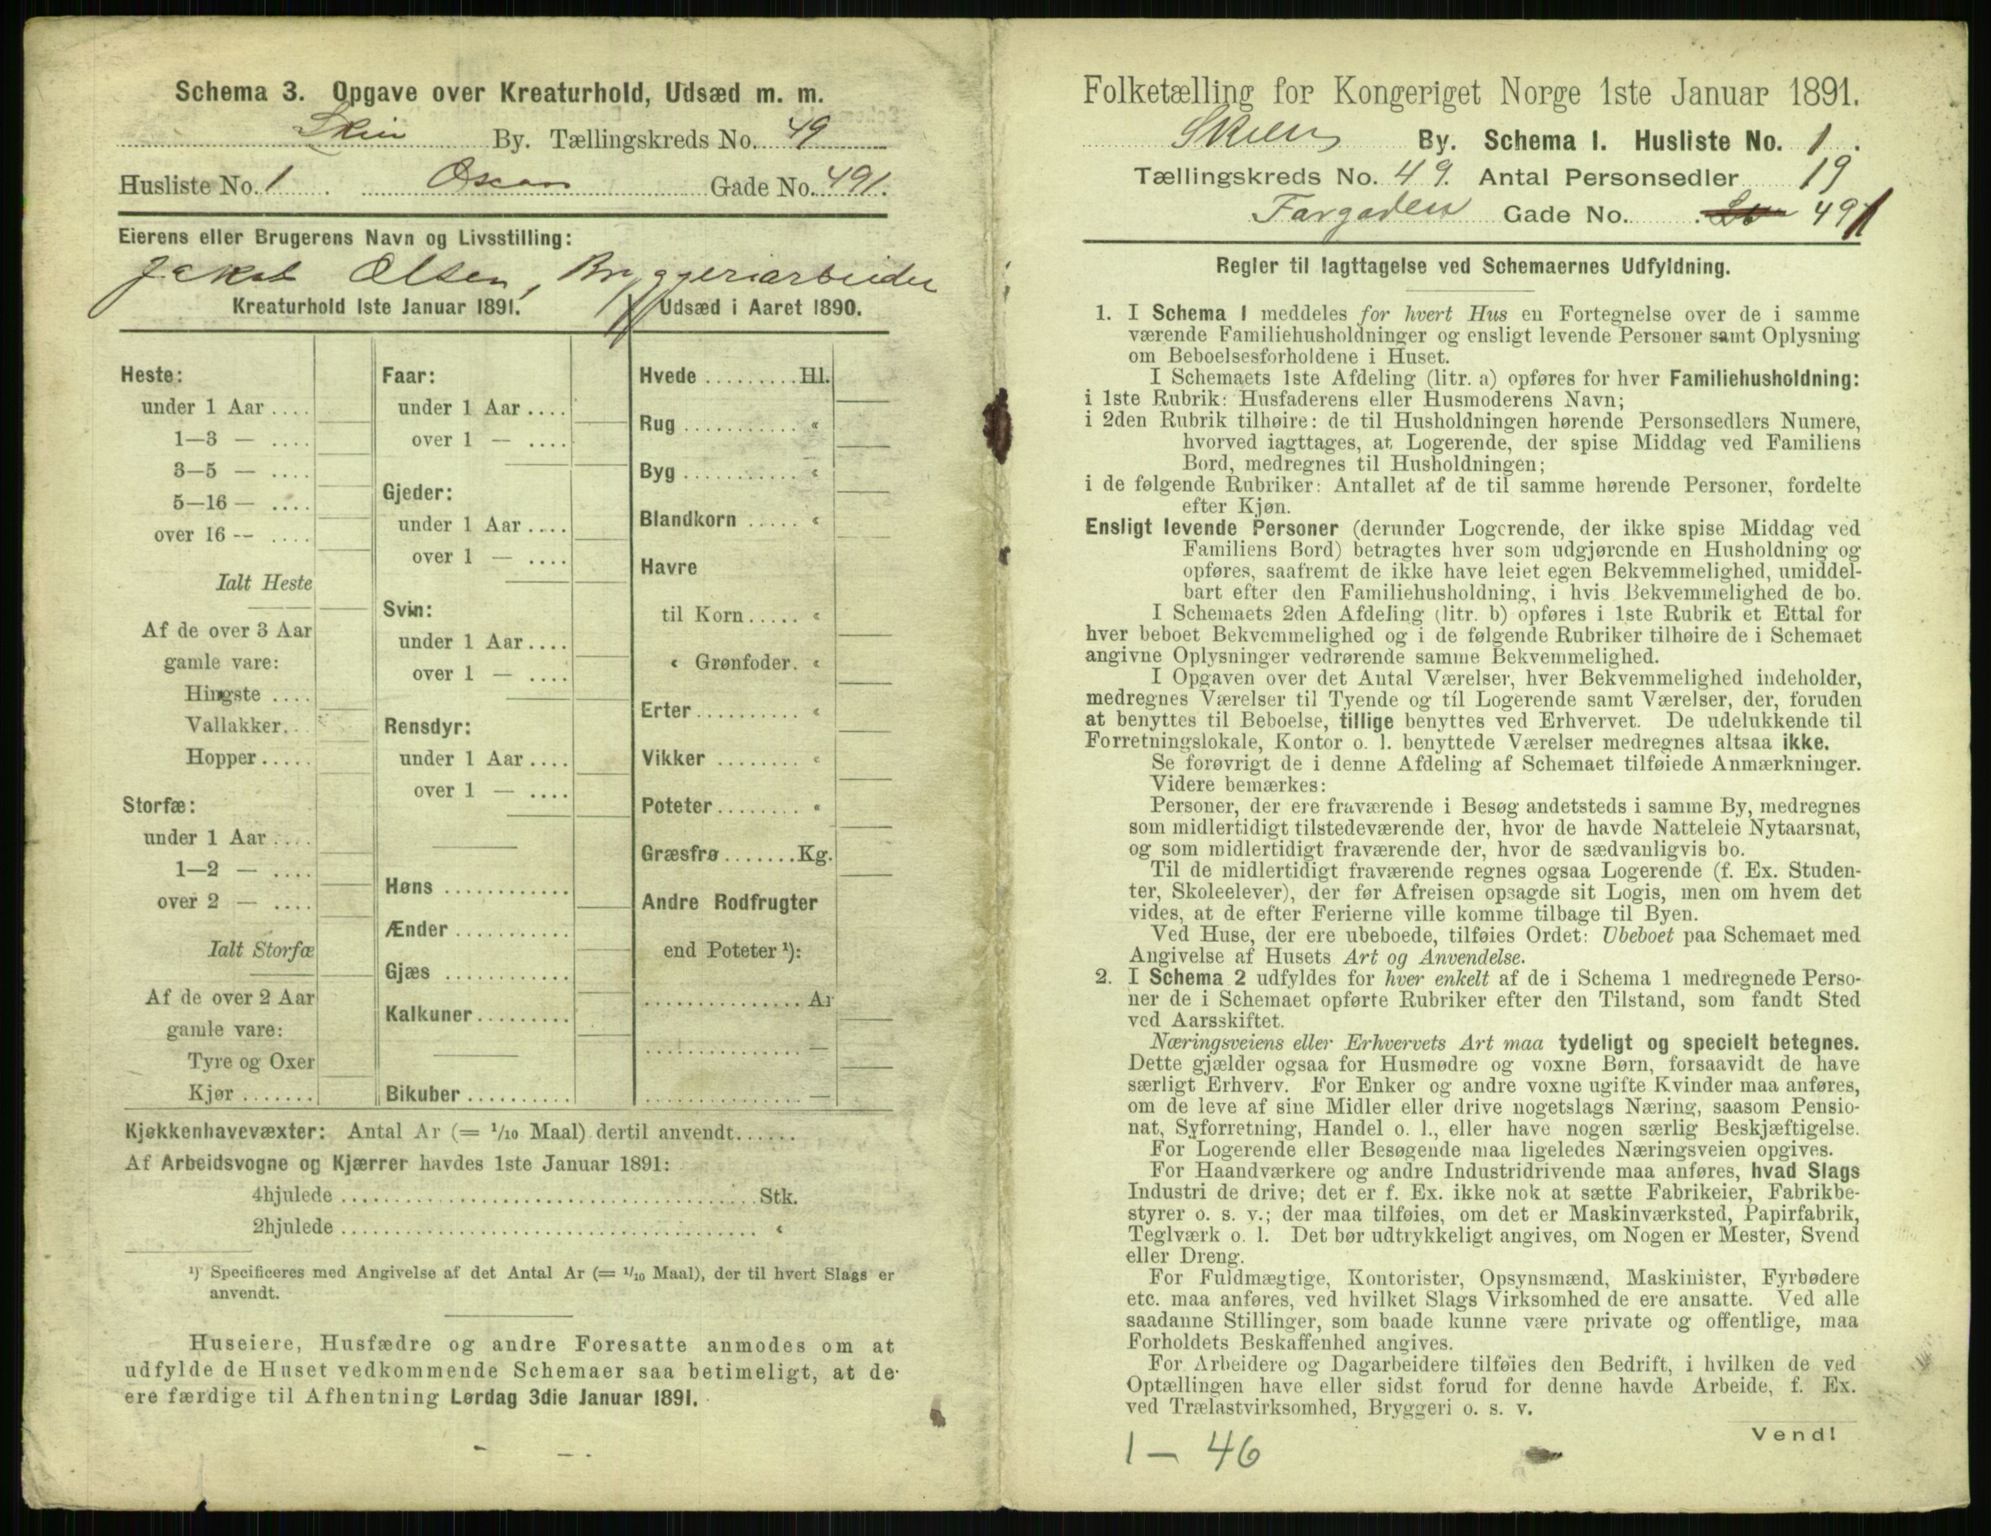 Schema 3. Opgave over Kreaturhold, Udsæd m. m.
Skien By. Tællingskreds No. 49
Husliste No. 1 Oscars Gade No. 491.
Eierens eller Brugerens Navn og Livsstilling:
Jakob Olsen, Bryggeriarbeider
Kreaturhold 1ste Januar 1891.
Heste:
under 1 Aar ....
1—3 — ....
3—5 — ....
5—16 — ....
over 16 -- ....
Ialt Heste
Af de over 3 Aar
gamle vare:
Hingste ....
Vallakker. .
Hopper .....
Storfæ:
under 1 Aar ....
1—2 — ....
over 2 — ....
Ialt Storfæ
Af de over 2 Aar
gamle vare:
Tyre og Oxer
Kjør .......
Faar:
under 1 Aar ....
over 1 — ....
Gjeder:
under 1 Aar ....
over 1 — ....
Svin:
under 1 Aar ....
over 1 — ....
Rensdyr:
under 1 Aar ....
over 1 — ....
Høns ............
Ænder ...........
Gjæs ............
Kalkuner.........
Bikuber ..........
Udsæd i Aaret 1890.
Hvede ......... Hl.
Rug ........... «
Byg ........... «
Blandkorn ..... «
Havre
til Korn ..... «
« Grønfoder. «
Erter .......... «
Vikker ........ «
Poteter ........ «
Græsfrø ....... Kg.
Andre Rodfrugter
end Poteter ¹):
............... Ar
............... —
............... —
Kjøkkenhavevæxter: Antal Ar (= 1/10 Maal) dertil anvendt......
Af Arbeidsvogne og Kjærrer havdes 1ste Januar 1891:
4hjulede ........................................ Stk.
2hjulede ........................................ «
¹) Specificeres med Angivelse af det Antal Ar (= 1/10 Maal), der til hvert Slags er
anvendt.
Huseiere, Husfædre og andre Foresatte anmodes om at
udfylde de Huset vedkommende Schemaer saa betimeligt, at de
ere færdige til Afhentning Lørdag 3die Januar 1891.
Folketælling for Kongeriget Norge 1ste Januar 1891.
Skien By. Schema I. Husliste No. 1.
Tællingskreds No. 49. Antal Personsedler 19
Fargaden Gade No. 491
Regler til Iagttagelse ved Schemaernes Udfyldning.
1. I Schema 1 meddeles for hvert Hus en Fortegnelse over de i samme
værende Familiehusholdninger og ensligt levende Personer samt Oplysning
om Beboelsesforholdene i Huset.
I Schemaets 1ste Afdeling (litr. a) opføres for hver Familiehusholdning:
i 1ste Rubrik: Husfaderens eller Husmoderens Navn;
i 2den Rubrik tilhøire: de til Husholdningen hørende Personsedlers Numere,
hvorved iagttages, at Logerende, der spise Middag ved Familiens
Bord, medregnes til Husholdningen;
i de følgende Rubriker: Antallet af de til samme hørende Personer, fordelte
efter Kjøn.
Ensligt levende Personer (derunder Logerende, der ikke spise Middag ved
Familiens Bord) betragtes hver som udgjørende en Husholdning og
opføres, saafremt de ikke have leiet egen Bekvemmelighed, umiddel-
bart efter den Familiehusholdning, i hvis Bekvemmelighed de bo.
I Schemaets 2den Afdeling (litr. b) opføres i 1ste Rubrik et Ettal for
hver beboet Bekvemmelighed og i de følgende Rubriker tilhøire de i Schemaet
angivne Oplysninger vedrørende samme Bekvemmelighed.
I Opgaven over det Antal Værelser, hver Bekvemmelighed indeholder,
medregnes Værelser til Tyende og til Logerende samt Værelser, der, foruden
at benyttes til Beboelse, tillige benyttes ved Erhvervet. De udelukkende til
Forretningslokale, Kontor o. l. benyttede Værelser medregnes altsaa ikke.
Se forøvrigt de i denne Afdeling af Schemaet tilføiede Anmærkninger.
Videre bemærkes:
Personer, der ere fraværende i Besøg andetsteds i samme By, medregnes
som midlertidigt tilstedeværende der, hvor de havde Natteleie Nytaarsnat,
og som midlertidigt fraværende der, hvor de sædvanligvis bo.
Til de midlertidigt fraværende regnes ogsaa Logerende (f. Ex. Studen-
ter, Skoleelever), der før Afreisen opsagde sit Logis, men om hvem det
vides, at de efter Ferierne ville komme tilbage til Byen.
Ved Huse, der ere ubeboede, tilføies Ordet: Ubeboet paa Schemaet med
Angivelse af Husets Art og Anvendelse.
2. I Schema 2 udfyldes for hver enkelt af de i Schema 1 medregnede Perso-
ner de i Schemaet opførte Rubriker efter den Tilstand, som fandt Sted
ved Aarsskiftet.
Næringsveiens eller Erhvervets Art maa tydeligt og specielt betegnes.
Dette gjælder ogsaa for Husmødre og voxne Børn, forsaavidt de have
særligt Erhverv. For Enker og andre voxne ugifte Kvinder maa anføres,
om de leve af sine Midler eller drive nogetslags Næring, saasom Pensio-
nat, Syforretning, Handel o. l., eller have nogen særlig Beskjæftigelse.
For Logerende eller Besøgende maa ligeledes Næringsveien opgives.
For Haandværkere og andre Industridrivende maa anføres, hvad Slags
Industri de drive; det er f. Ex. ikke nok at sætte Fabrikeier, Fabrikbe-
styrer o. s. v.; der maa tilføies, om det er Maskinværksted, Papirfabrik,
Teglværk o. l. Det bør udtrykkeligt angives, om Nogen er Mester, Svend
eller Dreng.
For Fuldmægtige, Kontorister, Opsynsmænd, Maskinister, Fyrbødere
etc. maa anføres, ved hvilket Slags Virksomhed de ere ansatte. Ved alle
saadanne Stillinger, som baade kunne være private og offentlige, maa
Forholdets Beskaffenhed angives.
For Arbeidere og Dagarbeidere tilføies den Bedrift, i hvilken de ved
Optællingen have eller sidst forud for denne havde Arbeide, f. Ex.
ved Trælastvirksomhed, Bryggeri o. s. v.
Vend!
1 — 46